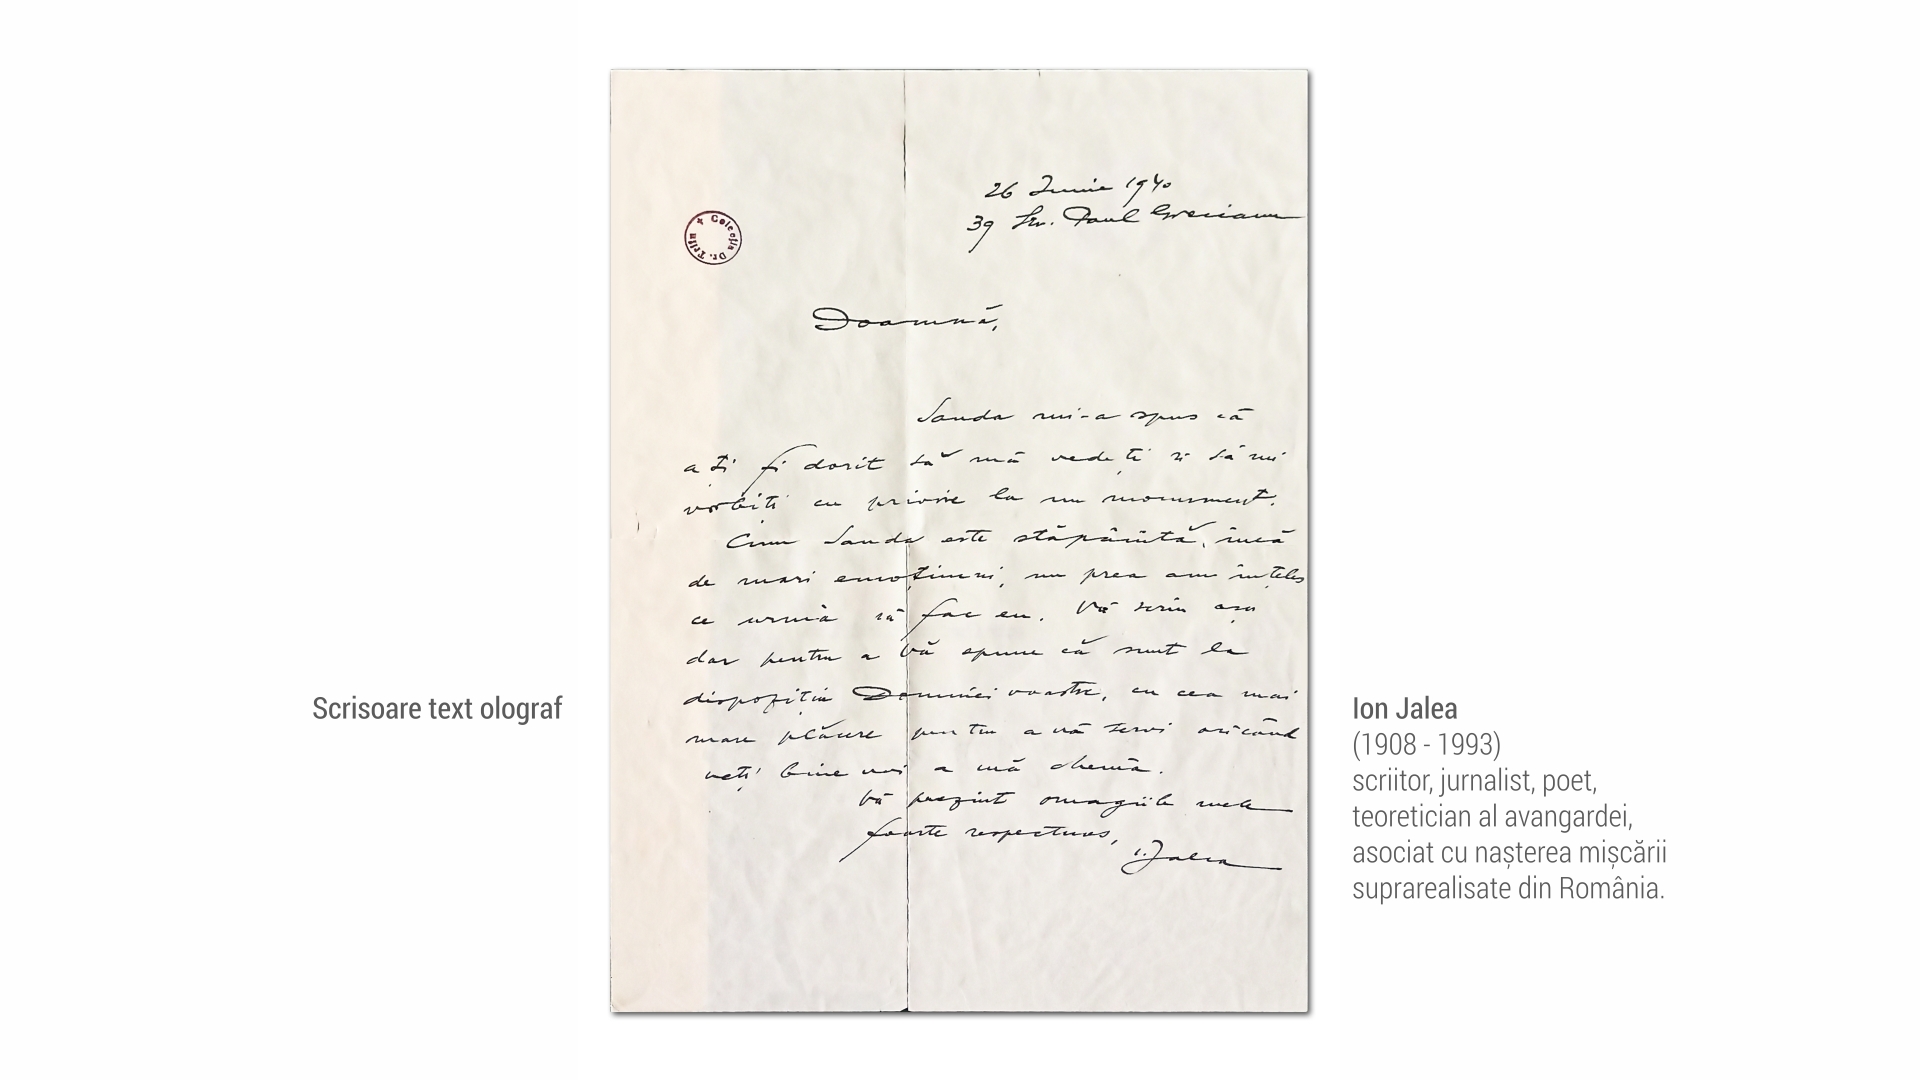 26 Iunie 1940
39 Str. Paul Greceanu
Colecția Dr. Telia
Doamnă,
Sanda mi-a spus că
ați fi dorit să mă vedeți și să-mi
vorbiți cu privire la un monument.
Cum Sanda este stăpânită, încă
de mari emoțiuni, nu prea am înțeles
ce urmă să fac eu. Vă scriu așa
dar pentru a vă spune că sunt la
dispoziția Domniei voastre, cu cea mai
mare plăcere pentru a vă servi oricând
veți bine voi a mă chemà.
Vă prezint omagiile mele
foarte respectuos,
I. Jalea
Scrisoare text olograf
Ion Jalea
(1908 - 1993)
scriitor, jurnalist, poet,
teoretician al avangardei,
asociat cu nașterea mișcării
suprarealisate din România.